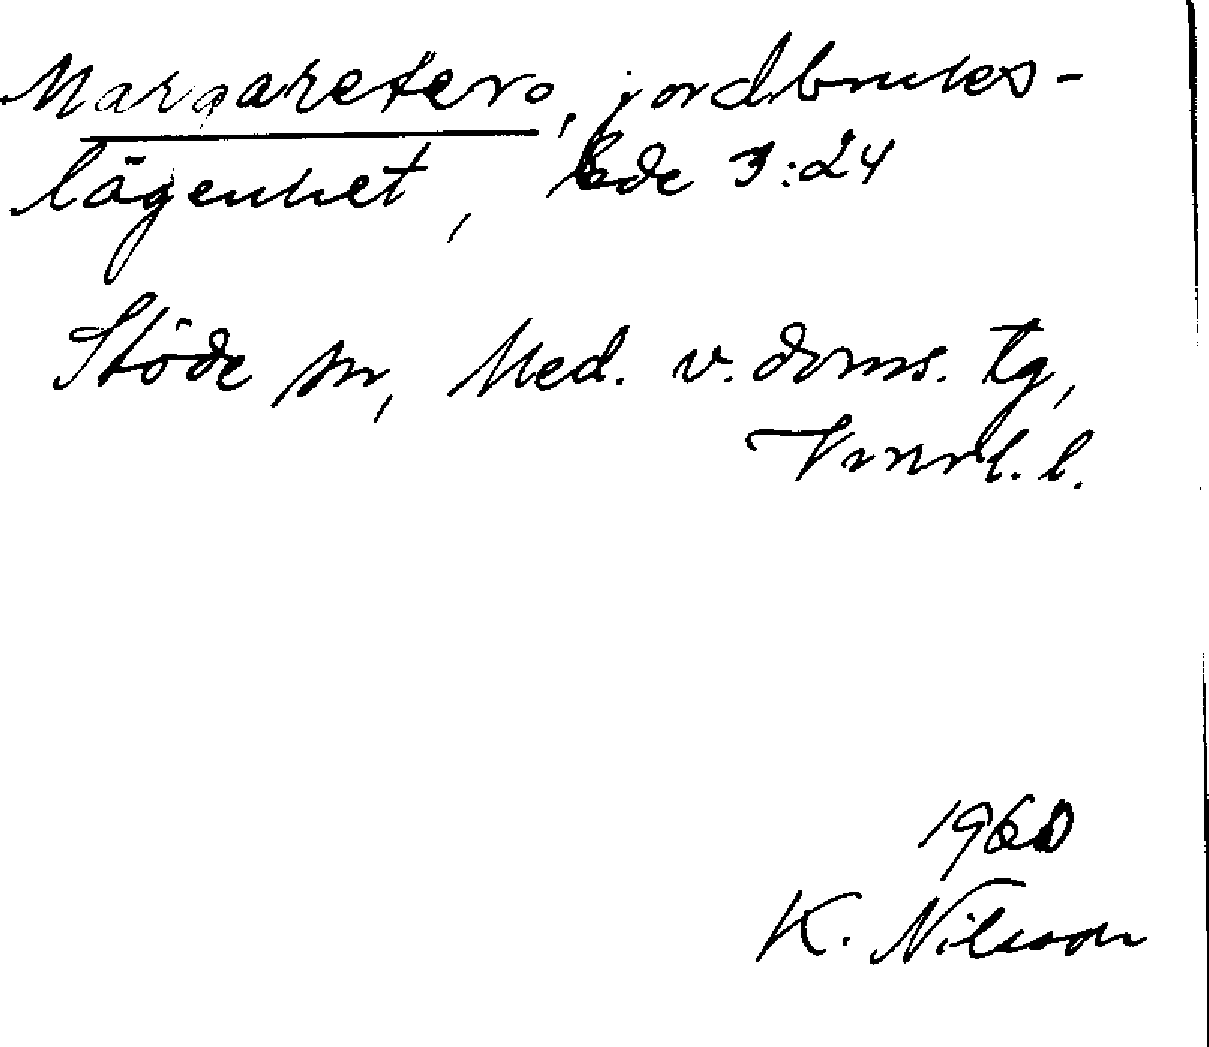 Margaretero, jordbruks-
lägenhet, Ede 3:24
Stöde sn, Med. v. doms. tg,
Vnorl. l.
1960
K. Nilsson